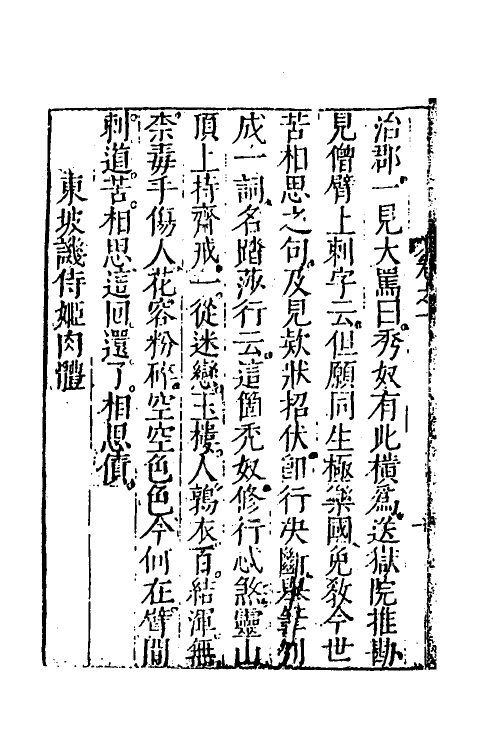 治郡一見大罵曰秃奴有此橫爲送獄院推勘
見僧臂上刺字云但願同生極樂國免教今世
苦相思之句及見欵狀招伏卽行决斷舉筆判
成一詞名踏莎行云這箇秃奴修行忒煞靈山
頂上持齋戒一從迷戀玉樓人鶉衣百結渾無
柰毒手傷人花容粉碎空空色色今何在臂間
刺道苦相思這回還了相思債
東坡譏侍姬肉體